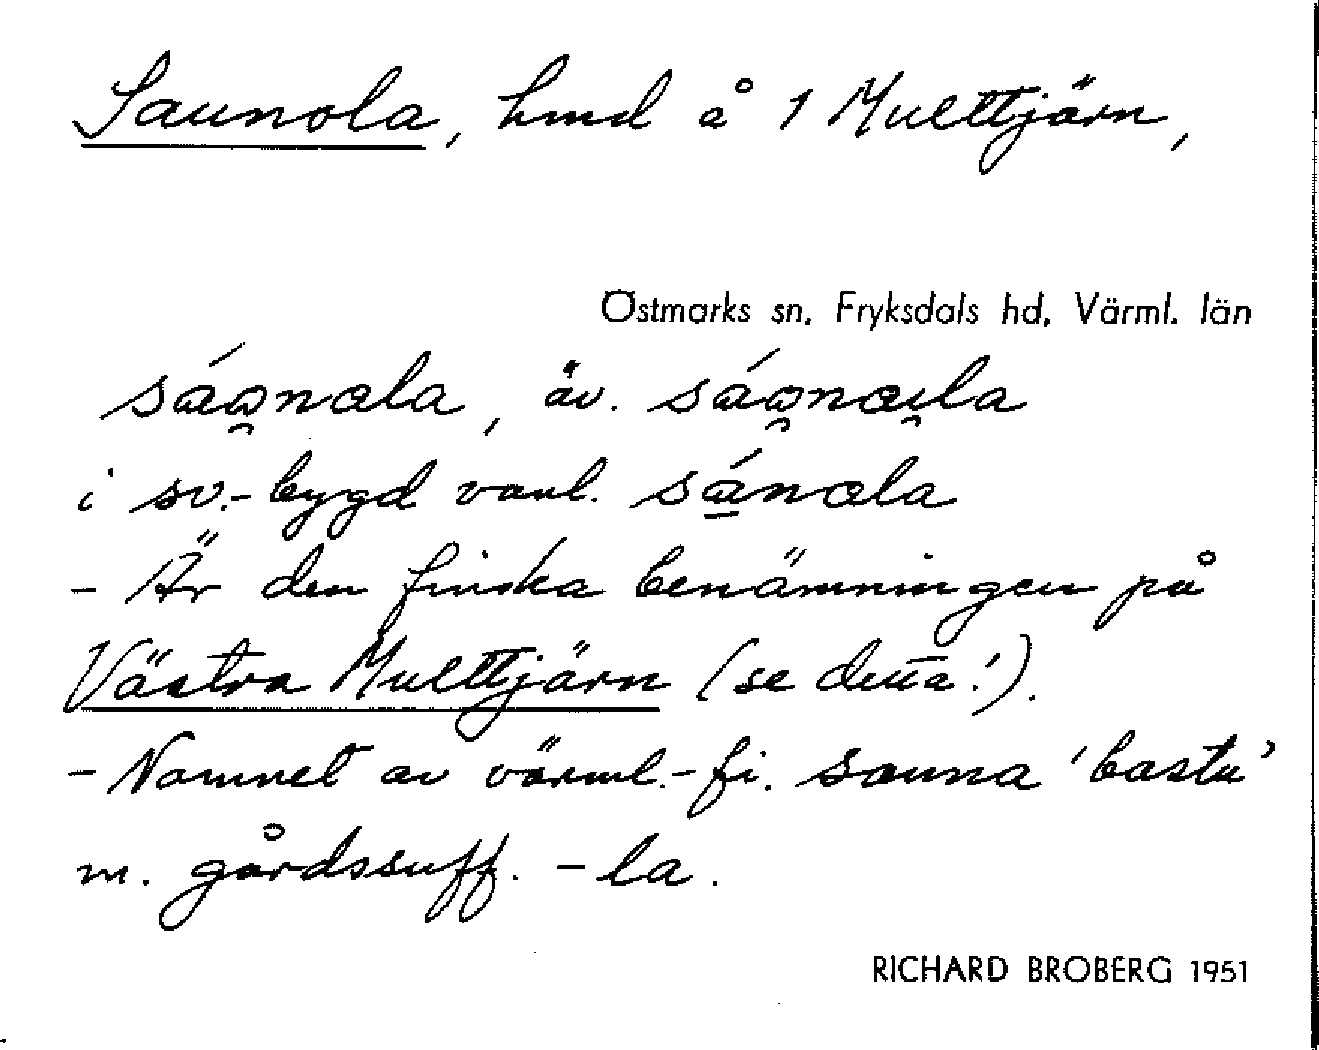 Saunola, hmd å 1 Multtjärn,
Östmarks sn. Fryksdals hd, Värml. län
i sv.-bygd vanl.
- Är den finska benämningen på
Västra Multtjärn (se detta!).
- Namnet av värml.-fi. sauna 'bastu'
m. gårdssuff. -la.
RICHARD BROBERG 1951